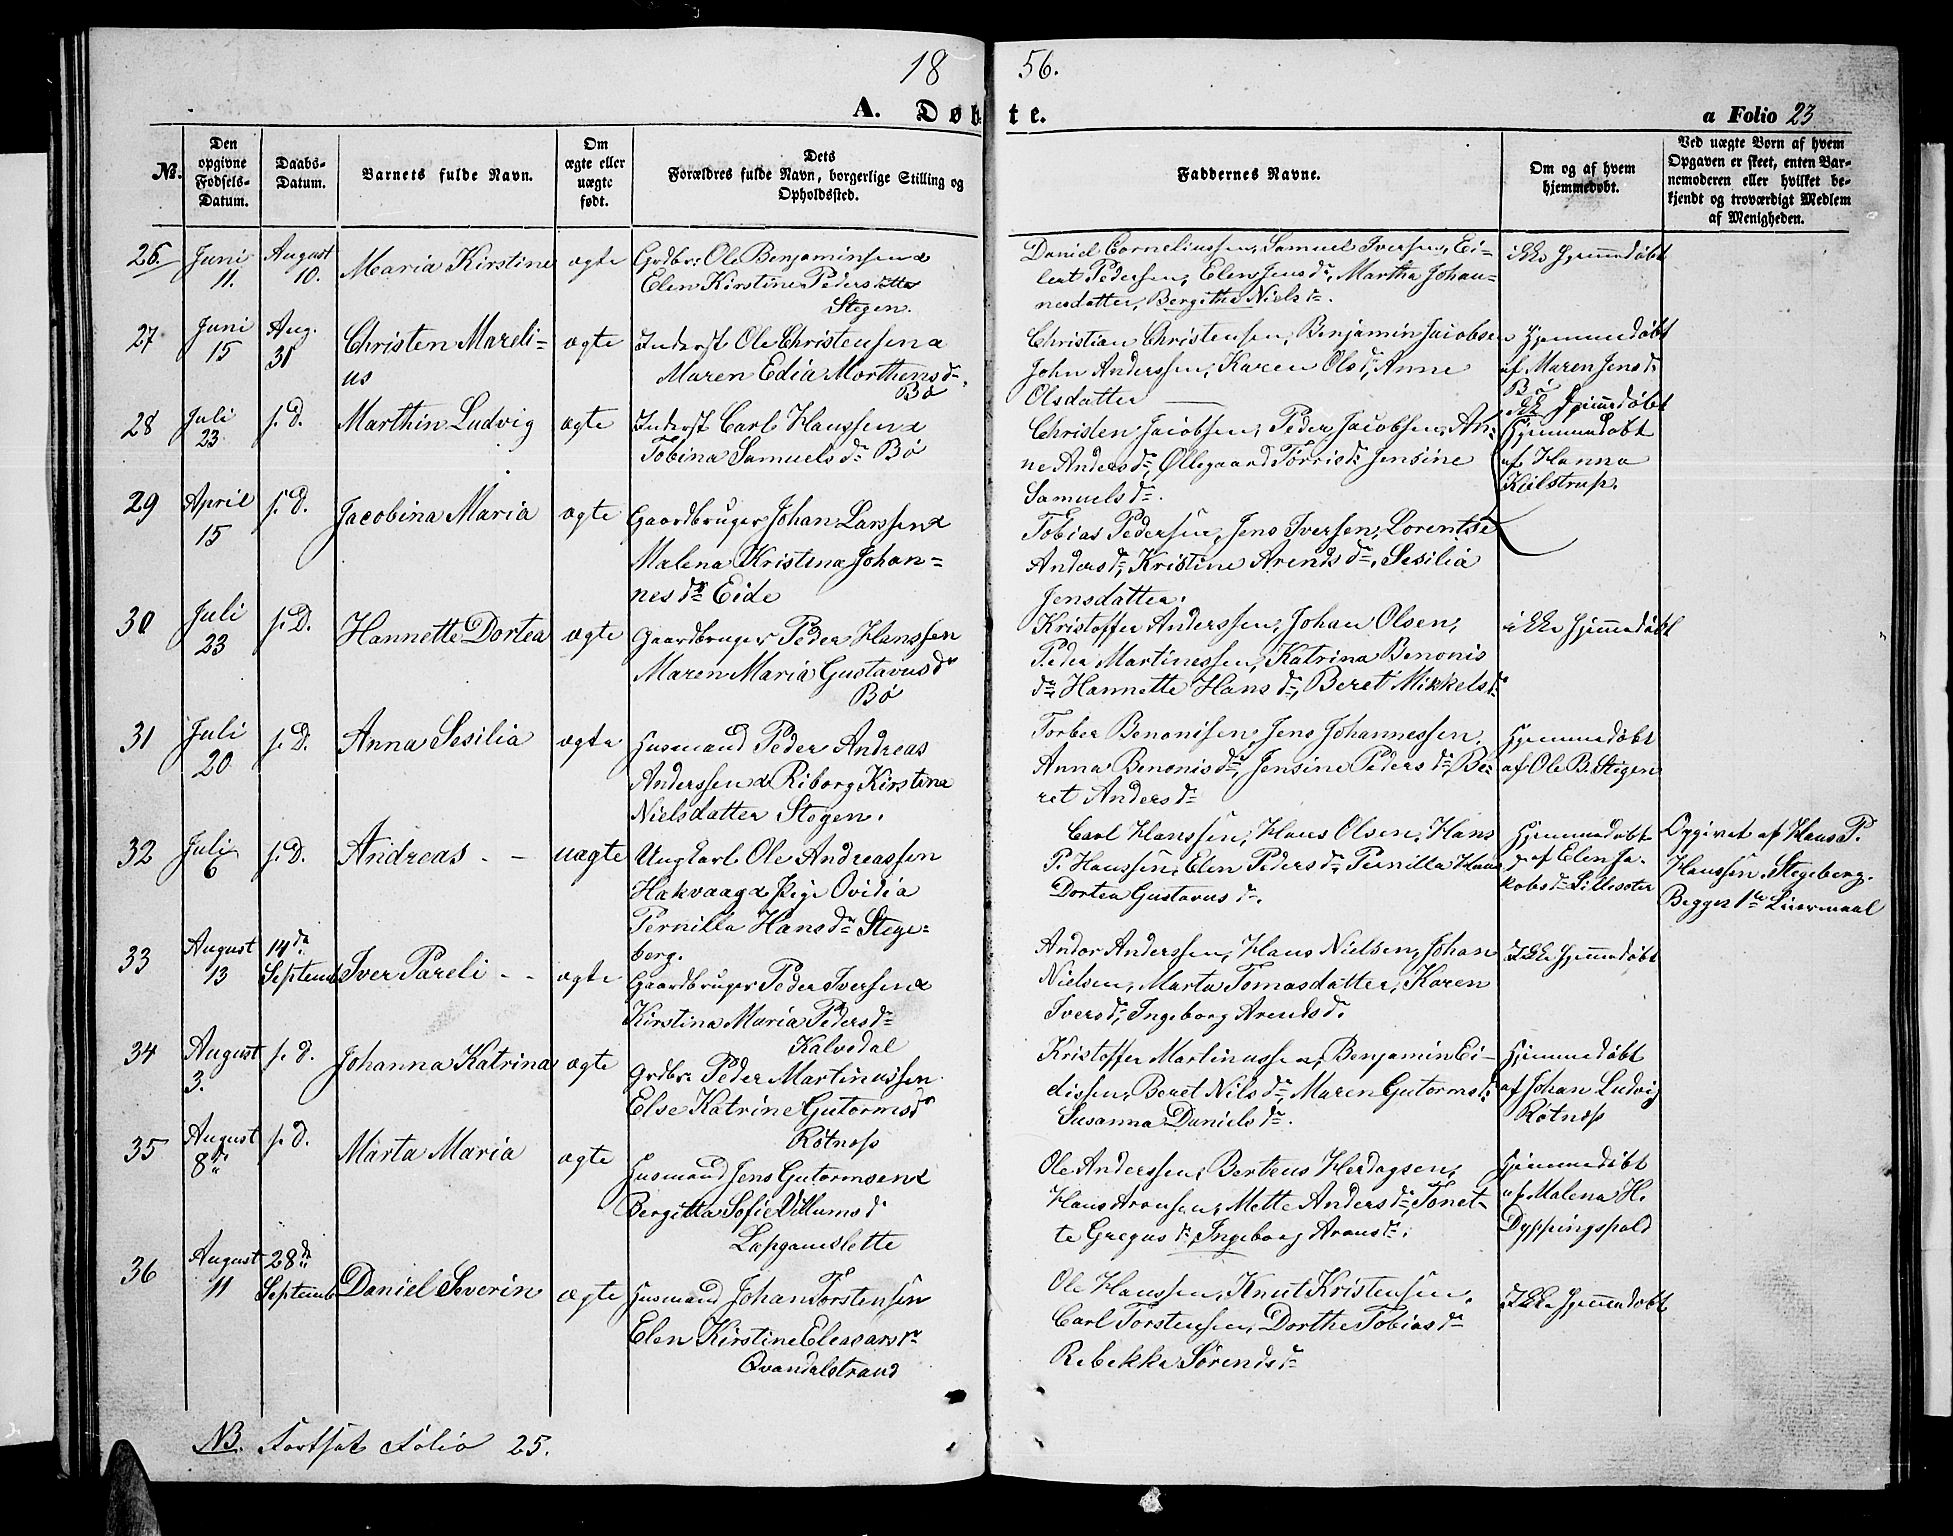 18 56.
A. Døbte.
a Folio 23
No.
Den opgivne Fødsels-Datum.
Daabs-Datum.
Barnets fulde Navn.
Om ægte eller uægte født.
Dets Forældres fulde Navn, borgerlige Stilling og Opholdssted.
Faddernes Navne.
Om og af hvem hjemmedøbt.
Ved uægte Børn af hvem Opgaven er skeet, enten Barnemoderen eller hvilket bekjendt og troværdigt Medlem af Menigheden.
26 Juni 11. August 10. Maria Kirstine ægte Grdbr: Ole Benjaminsen &
Elen Kirstine Pedersdatter
Stegen.
Daniel Corneliussen, Samuel Iversen, Ei-
lert Pedersen, Elen Jensdr, Martha Johan-
nesdatter, Bergitha Nielsdr.
ikke Hjemmedøbt
27 Juni 15 Aug. 31 Christen Mareli=
us
ægte Inderst Ole Christensen &
Maren Edia Morthensdr.
Bø
Christian Christensen, Benjamin Jacobsen
John Anderssen, Karen Olsdr, Anne
Olsdatter
Hjemmedøbt
af Maren Jensdr
Bø
28 Juli 23 s. D. Marthin Ludvig ægte Inderst Carl Hanssen &
Tobina Samuelsdr Bø
Christen Jacobsen, Peder Jacobsen, An-
ne Andersdr, Ollegaard Torrisdr Jensine
Samuelsdr.
Hjemmedøbt
Hjemmedøbt
af Hanna
Kjilstrup.
29 April 15 s. D. Jacobina Maria ægte Gaardbruger Johan Larssen &
Malena Kristena Johan=
nesdr Eide
Tobias Pedersen, Jens Iversen, Lorentse
Andersdr, Kristine Arendsdr, Sesilia
Jensdatter.
30 Juli 23 s. D. Hannette Dortea ægte Gaardbruger Peder Hanssen
Maren Maria Gustavusdr
Bø
Kristoffer Anderssen, Johan Olsen,
Peder Martinessen, Katrina Benonis
dr, Hannette Hansdr, Beret Mikkelsdr
ikke Hjemmedøbt
31 Juli 20 s. D. Anna Sesilia ægte Husmand Peder Andreas
Anderssen & Riborg Kirstina
Nielsdatter Stegen.
Torber Benonisen, Jens Johannessen,
Anna Benonisdr, Jensine Pedersdr, Be-
ret Andersdr
Hjemmedøbt
af Ole B. Stegen
32 Juli 6 s. D. Andreas - - uægte Ungkarl Ole Andreassen
Hakvaag & Pige Ovidia
Pernilla Hansdr Stege=
berg.
Carl Hanssen, Hans Olsen, Hans
P. Hanssen, Elen Pedersdr Pernilla Hans
Dortea Gustavusdr.
Hjemmedøbt
af Elen Ja-
kobsdr Sillesøter
Opgivet af Hans P.
Hanssen Stegeberg.
Begges 1te Leiermaal
33 August 13 14da Septemb Iver Pareli - - ægte Gaardbruger Peder Iversen &
Kirstina Maria Pedersdr
Kalvedal
Andor Anderssen, Hans Nielsen, Johan
Nielsen, Marta Tomasdatter, Karen
Iversdr, Ingeborg Arendsdr.
Ikke Hjemmedøbt
34 August 3. s. d. Johanna Katrina ægte Grdbr: Peder Martinussen
Else Katrine Gutormsdr
Røtness
Kristoffer Martinussen, Benjamin Ei-
dissen, Beret Nilsdr, Maren Gutormsdr
Susanna Danielsdr.
Hjemmedøbt
af Johan Ludvig
Røtness
35 August 8de s. d. Marta Maria ægte Husmand Jens Gutormsen &
Bergitta Sofie Villumsdr
Lapgamslette
Ole Anderssen, Berteus Herdagsen,
Hans Aronsen, Mette Andersdr, Tonet-
te Gregusdr, Ingeborg Aronsdr.
Hjemmedøbt
af Malena H.
Dyppingspold
36 August 11 28de Septemb Daniel Severin ægte Husmand Johan Torstensen
Elen Kirstine Eleasarsdr
Qvandalstrand
Ole Hanssen, Knut Kristensen,
Carl Torstensen, Dorthe Tobiasdr
Rebekka Sørendsdr
Ikke Hjemmedøbt
NB. Fortsat Folio 25.